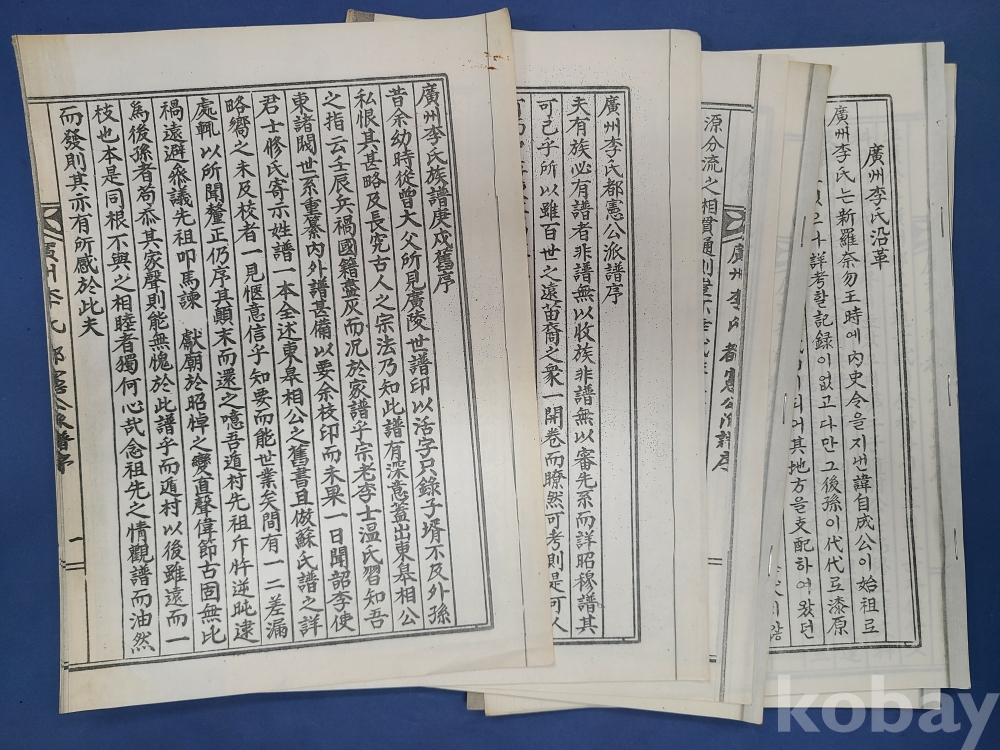 廣州李氏族譜庚戌舊序
昔余幼時從曾大父所見廣陵世譜印以活字只錄子壻不及外孫
私恨其甚略及長究古人之宗法乃知此譜有深意蓋出東皐相公
之指云壬辰兵禍國籍蓋灰而況於家譜乎宗老李士温氏習知吾
東諸閥世系重纂內外譜甚備以要余枝印而未果一日聞韶李使
君士修氏寄示姓譜一本全述東皐相公之舊書且倣蘇氏譜之詳
略嚮之未及枝者一見愜意信乎知要而能世業矣間有一二差漏
處輒以所聞釐正仍序其顚末而還之噫吾遁村先祖斥忤逆旽逮
禍遠避飱議先祖叩馬諫 獻朝於昭悼之變直聲偉節古固無比
爲後孫者苟忝其家聲則能無愧於此譜乎而遁村以後雖遠而一
枝也本是同根不與之相睦者獨何心哉念祖先之情觀譜而油然
而發則其亦有所感於此夫
一
廣州李氏都憲公派譜序
夫有族必有譜者非譜無以收族非譜無以審先系而詳昭穆譜其
可已乎所以雖百世之遠苗裔之衆一開卷而瞭然可考則是可人
源分流之相貫通則
廣州李氏都憲公派譜序
廣州李氏沿革
廣州李氏는新羅奈勿王時에內史令을지낸諱自成公이始祖로
詳考할記錄이없고다만그後孫이代代로漆原
其地方을支配하여왔던
kobay